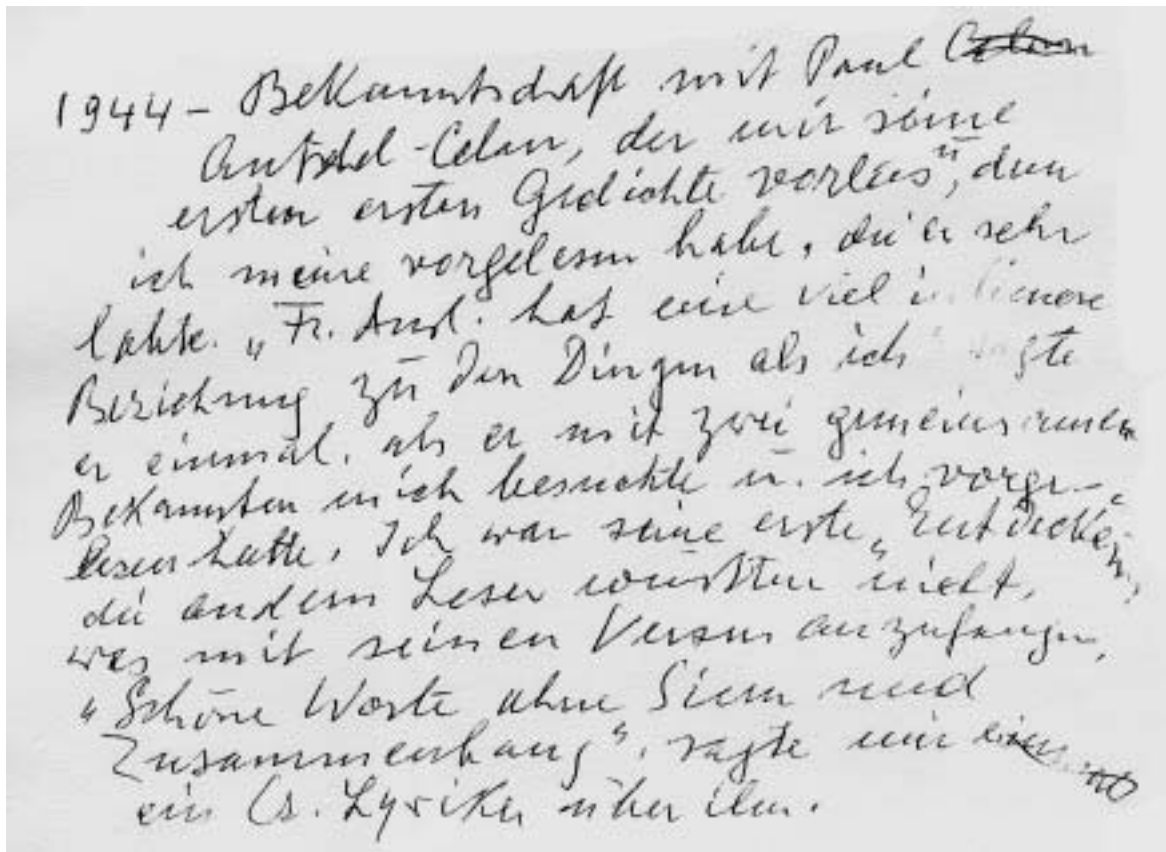 1944 – Bekanntschaft mit Paul Celan
Antschel-Celan, der mir seine
ersten ersten Gedichte vorlas u, dem
ich meine vorgelesen habe, die er sehr
lobte. „Fr. Ausl. hat eine viel
Beziehung zu den Dingen als ich sagte
er einmal, als er mit zwei gemeinsamen
Bekannten mich besuchte u. ich vorge-
lesen hatte. Ich war seine erste „Entdeckerin,
die andern Leser wussten nicht,
was mit seinen Versen anzufangen,
„Schöne Worte ohne Sinn und
Zusammenhang", sagte mir
ein Cz. Lyriker über ihn.